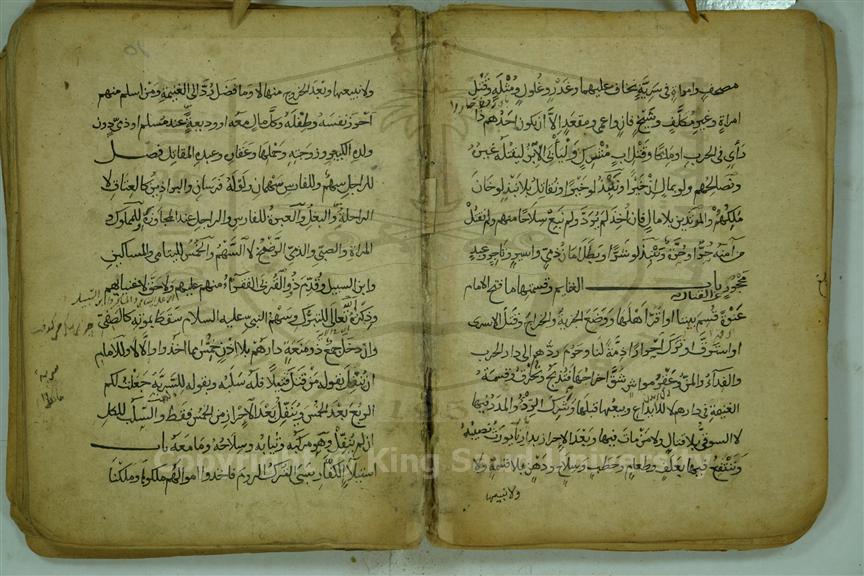 مصحف وامرأة في سرية يخاف عليهما وغدر وغلول ومثلة وقتل
امرأة وغير مكلف وشيخ فان واعمى ومقعد الا ان يكون احدهم ذا
رأي في الحرب او ملكا وقتل اب مشرك وليأب الابن ليقتله غيره
ونصالحهم ولو بمال ان خيرا وننبذ لو خيرا ونقاتل بلا نبذ لو خان
ملكهم والمرتدين بلا مال فان اخذ لم يرد ولم نبع سلاحا منهم ولم نقتل
من امنه حر او حرة وننبذ لو شرا وبطل امان ذمي واسير وتاجر وعبد
محجور عن القتال باب الغنايم وقسمتها ما فتح الامام
عنوة قسم بيننا او اقر اهلها ووضع الجزية والخراج وقتل الاسرى
او استرق او ترك احرارا ذمة لنا وحرم ردهم الى دار الحرب
والفداء والمن وعقر مواش شق اخراجها فتذبح وتحرق وقسمة
الغنيمة في دارهم لا للايداع وبيعها قبلها وشرك الردء والمدد فيها
لا السوقي بلا قتال ولا من مات فيها وبعد الاحراز بدارنا يورث نصيبه
وينتفع فيها بعلف وطعام وحطب وسلاح ودهن بلا قسمة ولا
ولا نبيعها
ولا نبيعها وبعد الخروج منها لا وما فضل رد الى الغنيمة ومن اسلم منهم
احرز نفسه وطفله وكل مال معه او وديعة عند مسلم او ذمي دون
ولده الكبير وزوجته وحملها وعقاره وعبده المقاتل فصل
للراجل سهم وللفارس سهمان ولو له فرسان والبراذين كالعتاق لا
الراحلة والبغل والعبرة للفارس والراجل عند المجاوزة وللمملوك و
المرأة والصبي والذمي الرضخ لا السهم والخمس لليتامى والمساكين
وابن السبيل وقدم ذوو القربى الفقراء منهم عليهم ولا حق لاغنيائهم
وذكره تعالى للتبرك وسهم النبي عليه السلام سقط بموته كالصفي
وان دخل جمع ذو منعة دارهم بلا اذن خمس ما اخذوا والا لا وللامام
ان ينفل بقوله من قتل قتيلا فله سلبه وبقوله للسرية جعلت لكم
الربع بعد الخمس وينفل بعد الاحراز من الخمس فقط والسلب للكل
ان لم ينفل وهو مركبه وثيابه وسلاحه وما معه باب
استيلاء الكفار سبى الترك الروم فاخذوا اموالهم ملكوها وملكنا
Copyright © King Saud University